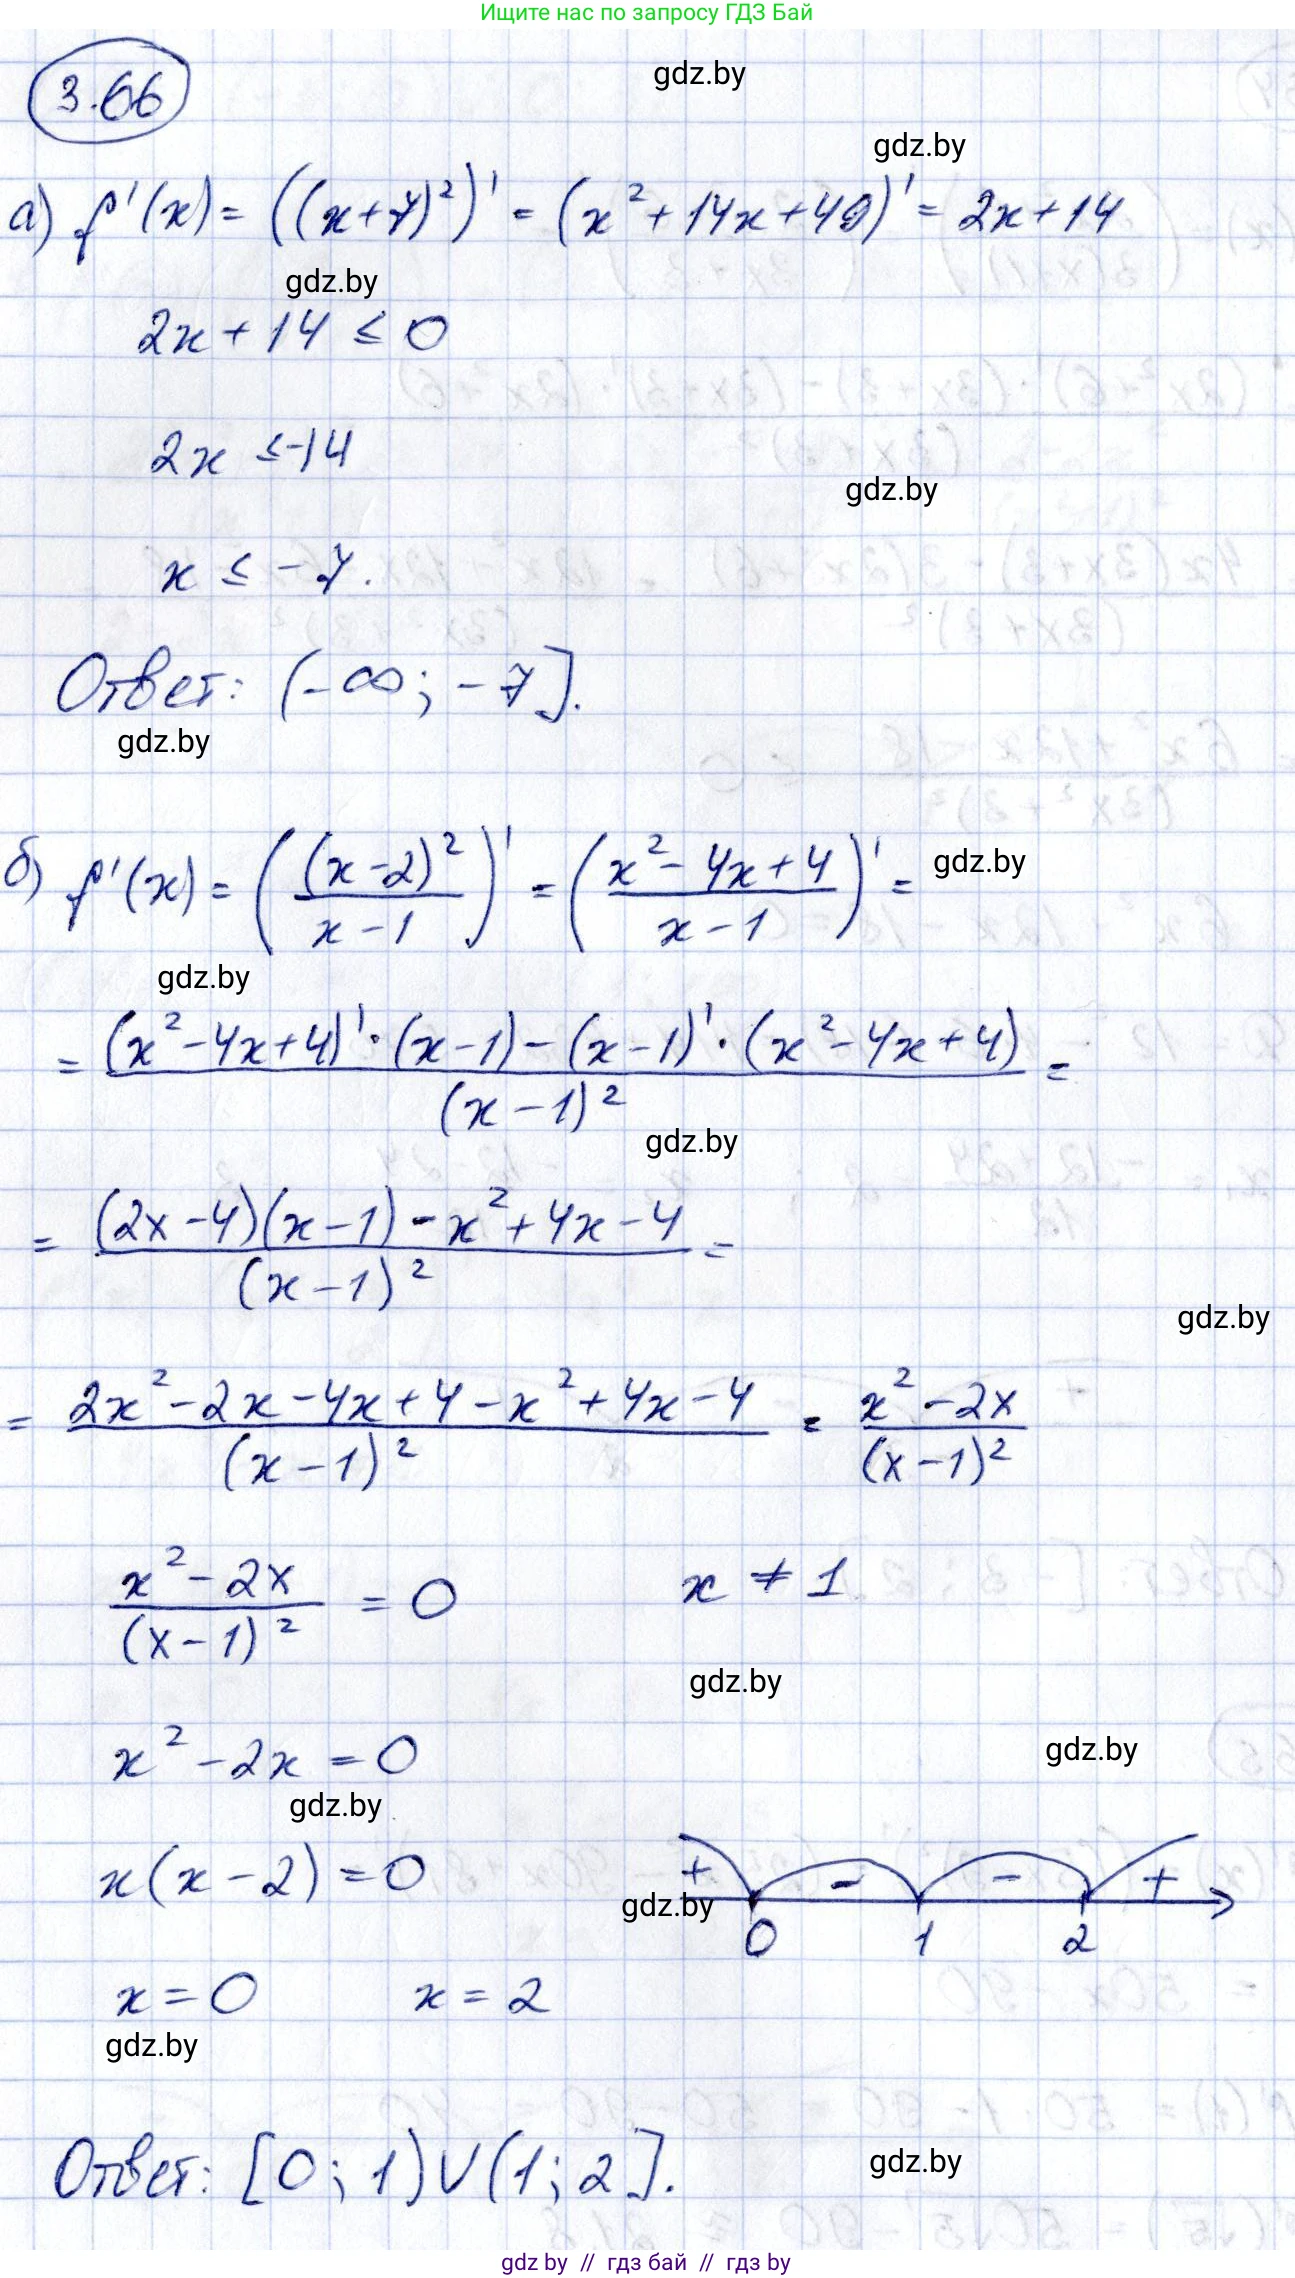 Ищите нас по запросу ГДЗ Бай
gdz.by
3.66
gdz.by
а) f'(x) = ((x+7)²)' = (x² + 14x + 49)' = 2x + 14
gdz.by
2x + 14 ≤ 0
2x ≤ -14
gdz.by
x ≤ -7.
Ответ: (-∞; -7].
gdz.by
б) f'(x) = ((x-2)²/(x-1))' = ((x² - 4x + 4)/(x-1))' =
gdz.by
gdz.by
= ((x² - 4x + 4)' · (x-1) - (x-1)' · (x² - 4x + 4))/(x-1)² =
gdz.by
= ((2x-4)(x-1) - x² + 4x - 4)/(x-1)² =
gdz.by
= (2x² - 2x - 4x + 4 - x² + 4x - 4)/(x-1)² = (x² - 2x)/(x-1)²
(x² - 2x)/(x-1)² = 0 x ≠ 1
gdz.by
x² - 2x = 0
gdz.by
gdz.by
x(x-2) = 0
+ - - +
gdz.by
0 1 2
x = 0 x = 2
gdz.by
Ответ: [0; 1) ∪ (1; 2].
gdz.by
gdz by // гдз бай // гдз by